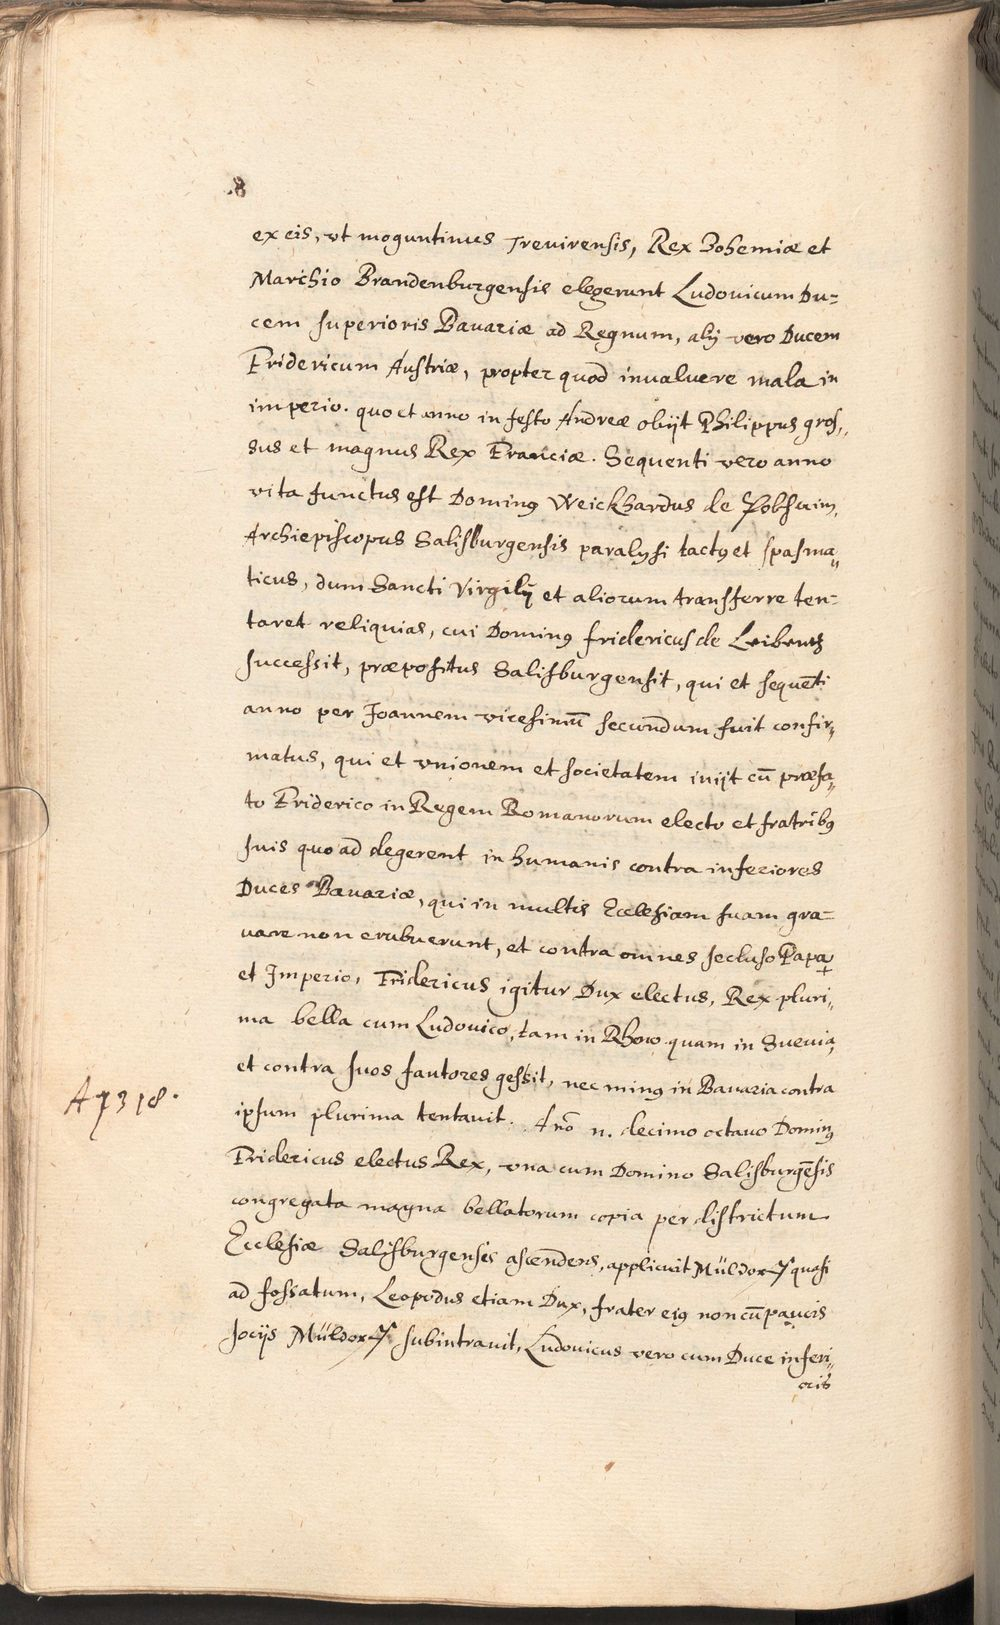 .8
ex eis, vt moguntinus Treuirensis, Rex Bohemiæ et
Marchio Brandenburgensis elegerunt Ludouicum Du=
cem superioris Bauariæ ad Regnum, alij vero Ducem
Fridericum Austriæ, propter quod inualuere mala in
imperio. quo et anno in festo Andreæ obijt Philippus gros„
sus et magnus Rex Franciæ. Sequenti vero anno
vita functus est Dominꝰ Weickhardus de
Archiepiscopus Salisburgensis paralysi tactꝰ et spasma„
ticus, dum Sancti Virgilij et aliorum transferre ten=
taret reliquias, cui Dominꝰ fridericus de Leibentz
successit, præpositus Salisburgensit, qui et sequēti
anno per Joannem vicesimū secundum fuit confir„
matus, qui et vnionem et societatem inijt cū præfa„
to Friderico in Regem Romanorum electo et fratribꝰ
suis quo ad degerent in humanis contra inferiores
Duces Bauariæ, qui in multis Ecclesiam suam gra=
uare non erubuerunt, et contra omnes secluso Papa
et Imperio, Fridericus igitur Dux electus, Rex pluri„
ma bella cum Ludouico, tam in Rheno quam in Sueuia,
et contra suos fautores gessit, nec minꝰ in Bauaria contra
A 1318.
ipsum plurima tentauit. Ano n. decimo octauo Dominꝰ
Fridericus electus Rex, vna cum Domino Salisburgēsis
congregata magna bellatorum copia per districtum
Ecclesiæ Salisburgensis ascendens, applicuit Müldorf quasi
ad fossatum, Leopodus etiam Dux, frater eiꝰ non cū paucis
socijs Müldorf subintrauit, Ludouicus vero cum Duce inferi„
oris